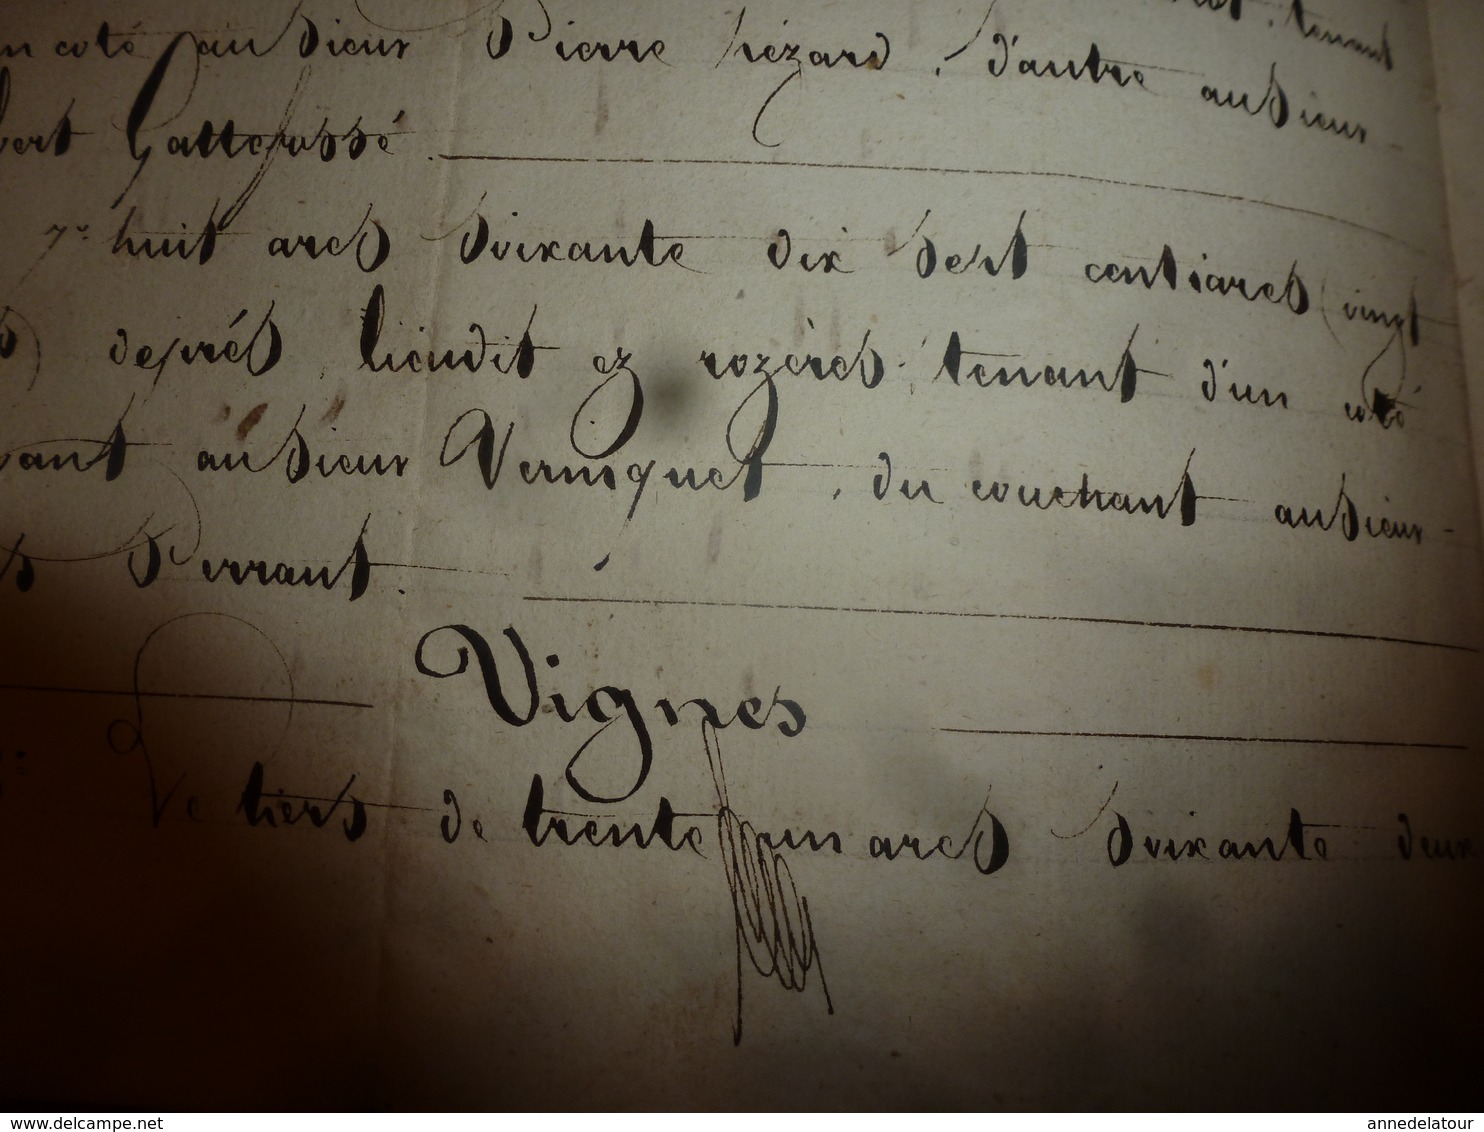 tenant
coté au Sieur Pierre hézard, d'autre au Sieur
Gattefossé.
7° huit ares Soixante dix Sept centiares (vingt
) de prés, lieudit ez rozères, tenant d'un coté
au Sieur Verniquet, du couchant au Sieur
Perrant.
Vignes
Le tiers de trente un ares Soixante deux
www.delcampe.net
annedelatour